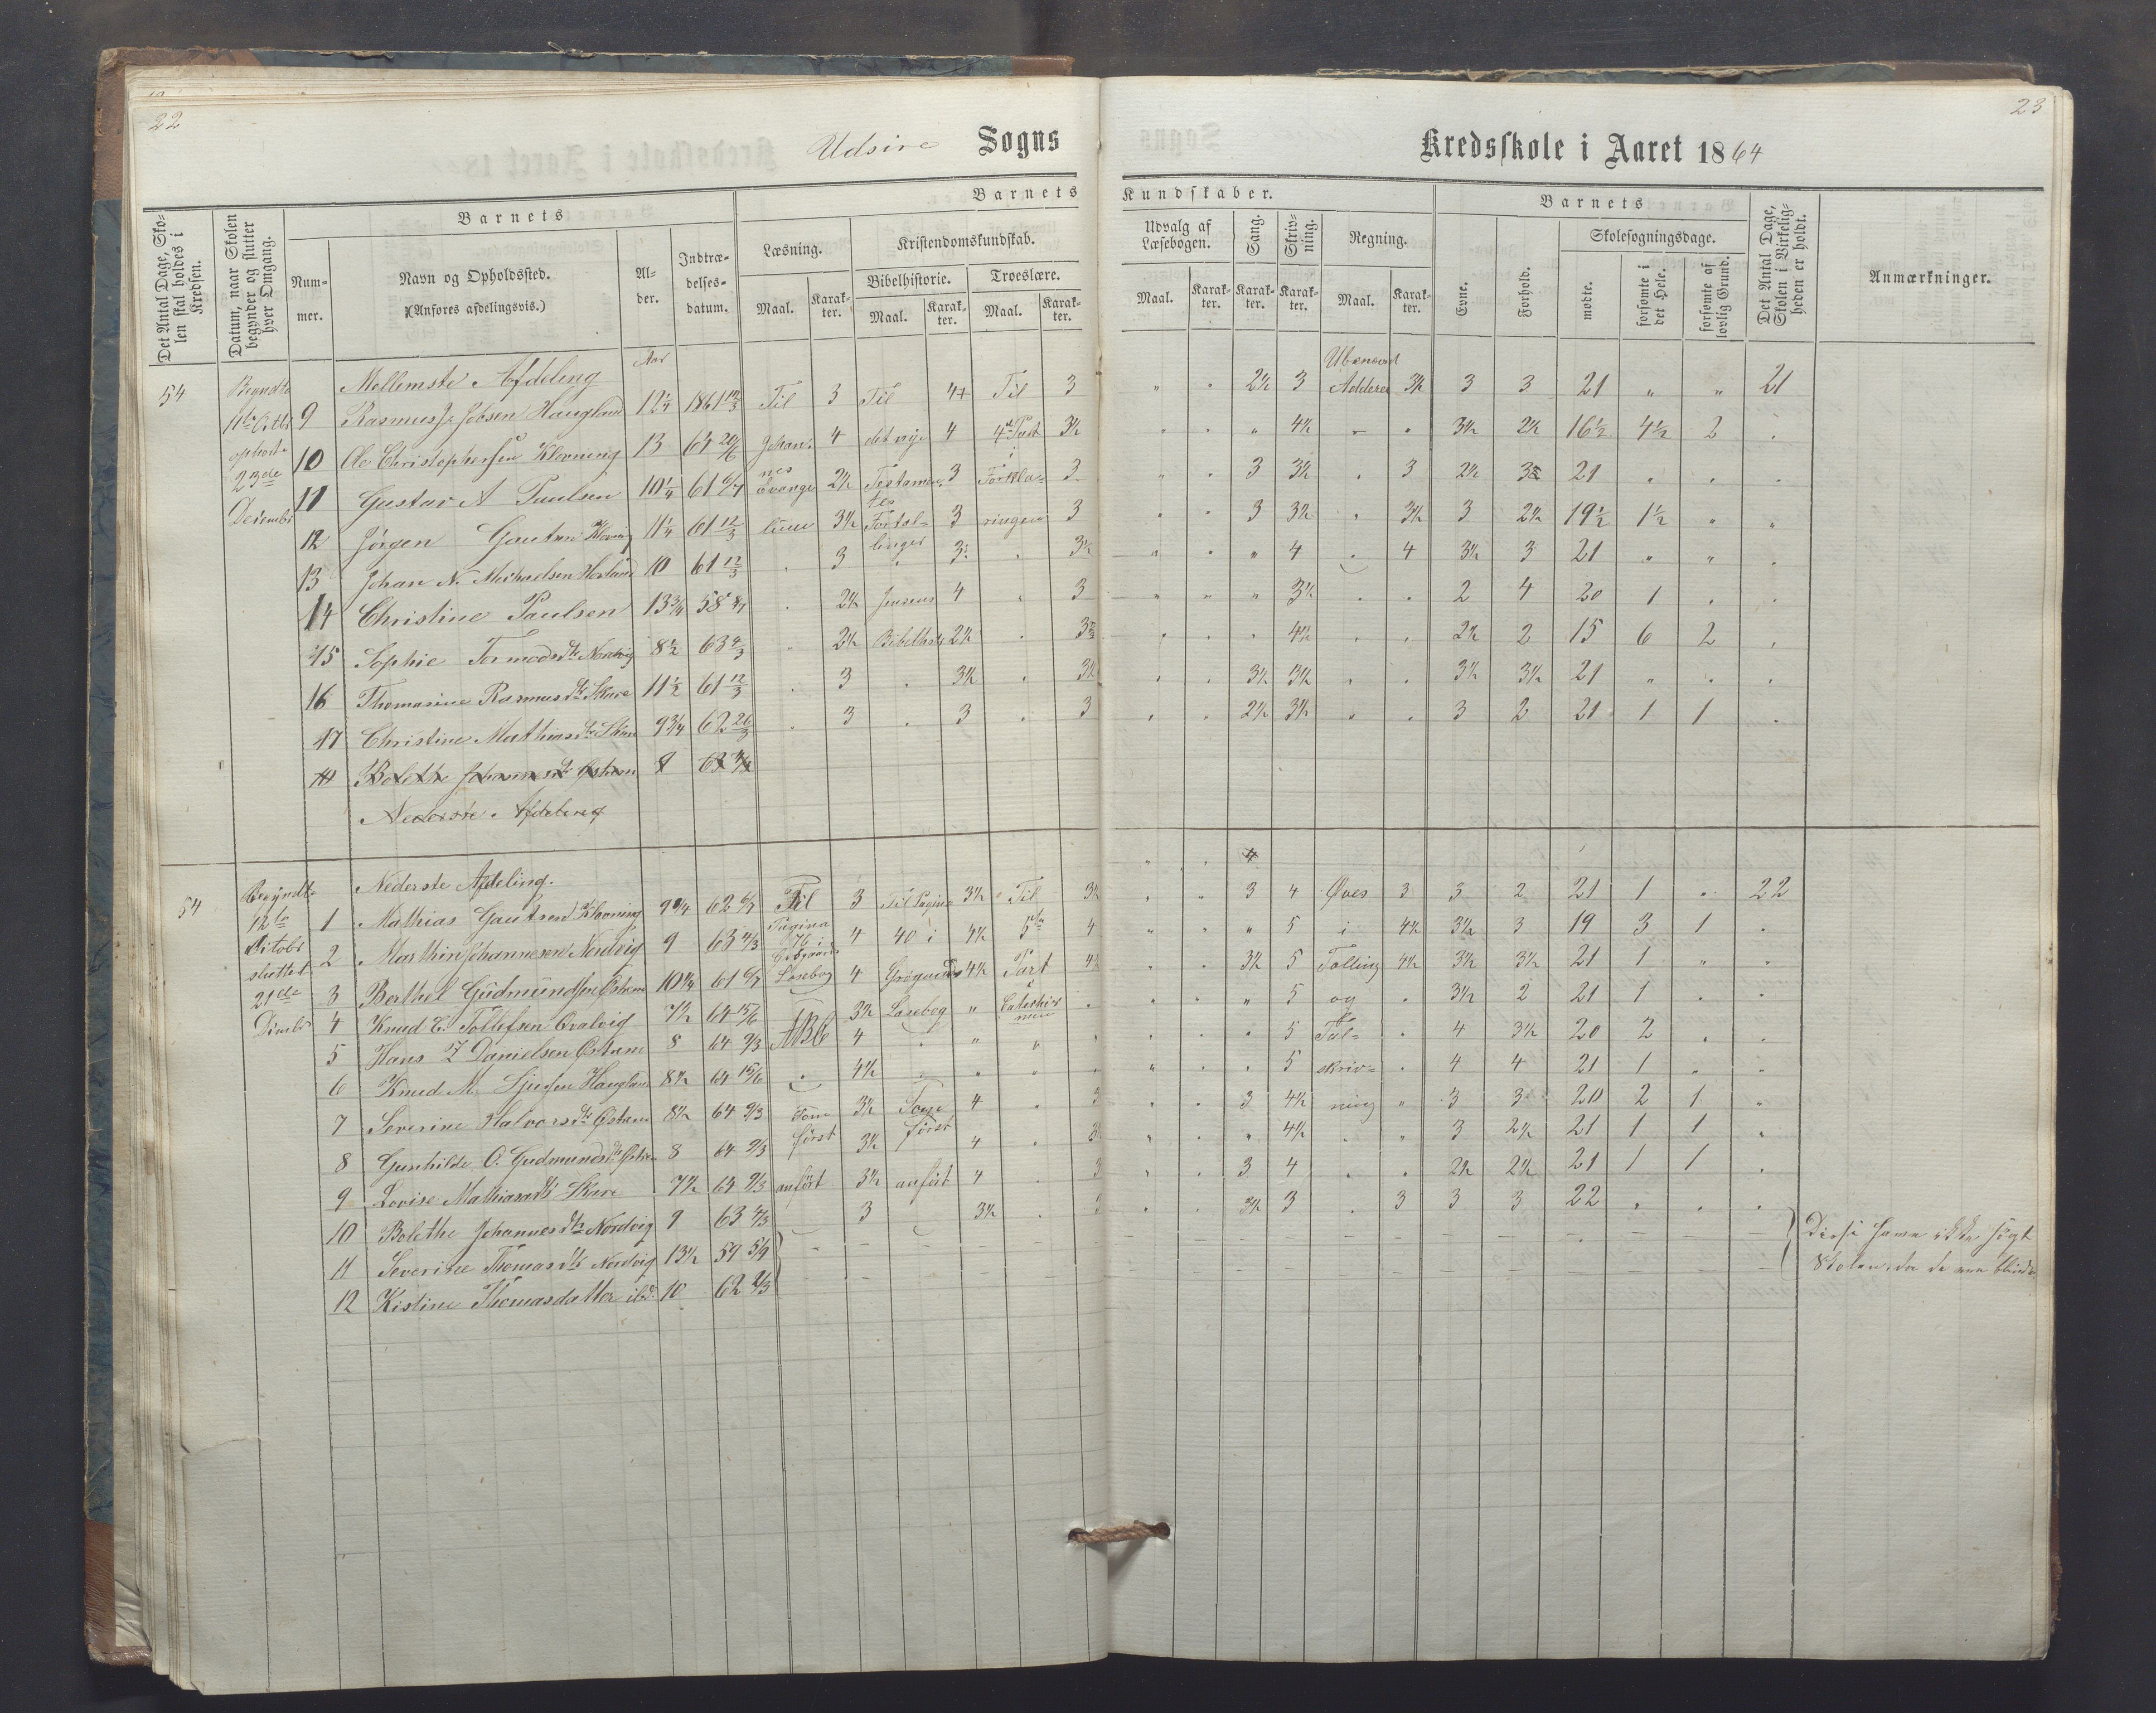 22
23
Udsire Sogns
Kredsskole i Aaret 1864
Det Antal Dage, Skolen skal holdes i Kredsen.
Datum, naar Skolen begynder og slutter hver Omgang.
Barnets
Nummer.
Navn og Opholdssted.
(Anføres afdelingsvis.)
Alder.
Indtrædelsesdatum.
Barnets Kundskaber.
Læsning.
Maal.
Karakter.
Kristendomskundskab.
Bibelhistorie.
Maal.
Karakter.
Troeslære.
Maal.
Karakter.
Udvalg af Læsebogen.
Maal.
Karakter.
Sang.
Karakter.
Skrivning.
Karakter.
Regning.
Maal.
Karakter.
Barnets
Evne.
Forhold.
Skolesøgningsdage.
mødte.
forsømte i det Hele.
forsømte af lovlig Grund.
Det Antal Dage, Skolen i Virkeligheden er holdt.
Anmærkninger.
54
Begyndte
ophørte
23de
Decembr
Mellemste Afdeling Aar Ubenævnt
9 Rasmus J. Jobsen Haugland 12¼ 1861 12/3 Til 3 Til 4+ Til 3 " " 2½ 3 Addere 3½ 3 3 21 " " 21
10 Ole Christophersen Klovning 13 64 20/6 Johannes 4 det nye 4 4de Part i 3½ " " " 4½ " " 3½ 2½ 16½ 4½ 2 "
11 Gustav A Paulsen 10¼ 61 6/7 Evange 2½ Testamentes 3 Forkla= 3 " " 3 3½ " 3 2½ 3 21 " " "
12 Jørgen Gautsen Klovning 11¼ 61 12/3 lium 3½ Fortæl= 3 ringen 3 " " 3 3½ " 3½ 3 2½ 19½ 1½ " "
13 Johan N. Michaelsen Hovland 10 61 12/3 " 3 linger 3½ " 3½ " " " 4 " 4 3½ 3 21 " " "
14 Christine Paulsen 13¾ 58 8/7 " 2½ Jensens 4 " 3 " " " 3½ " " 2 4 20 1 " "
15 Sophie Tormodsdtr Nordvig 8½ 63 4/3 " 2½ Bibelhist 2½ " 3½ " " " 4½ " " 2½ 2 15 6 2 "
16 Thomasine Rasmusdtr Skare 11½ 61 12/3 " 3 " 3½ " 3½ " " 3½ 3½ " " 3½ 3½ 21 " " "
17 Christine Mathiasdtr Skare 9¾ 62 26/3 " 3 " 3 " 3 " " 2½ 3½ " " 3 2 21 1 1 "
Bolethe Johannesdtr 8 63
Nederste Afdeling
54
Begyndt
12te
Octobr
sluttet
21de
Dcmbr
Nederste Afdeling.
1 Mathias Gautsen Klovning 9¾ 62 6/7 Til 3 Til Pagina 3½ Til 3½ " " 3 4 Øves 3 3 2 21 1 " 22
2 Marthin Johannesen Nordvig 9 63 4/3 Pagina 76 i 4 40 i 4½ 5te 4 " " " 5 i 4½ 3½ 3 19 3 1 "
3 Berthel Gudmundsen Østrem 10¾ 61 6/7 Læsebog 4 Grøgaards 4½ Part 4½ " " 3½ 5 Tælling 4½ 3½ 3½ 21 1 " "
4 Knud E. Tollefsen Qvalvig 7½ 64 15/6 3½ Læsebog " i Catechismen " " " " 5 og " 3½ 2 21 1 " "
5 Hans Z Danielsen Østrem 8 64 9/3 ABC 4 " " " " " " " 5 Tal= " 4 3½ 20 2 " "
6 Knud M. Sjursen Haugland 8½ 64 15/6 " 4½ " " " " " " " 5 skriv= " 4 4 21 1 " "
7 Severine Halvorsdtr Østrem 8½ 64 9/3 Som 3½ Som 4 " 3 " " 3 4½ ning " 3 3 20 2 1 "
8 Gunhilde O. Gudmundsdtr Østrem 8 64 9/3 først 3½ først 4 " 3½ " " " 4½ " " 3 2½ 21 1 1 "
9 Lovise Mathiasdtr Skare 7½ 64 9/3 anført 3½ anført 4 " 3 " " 3 4 " " 2½ 2½ 21 1 1 "
10 Bolethe Johannesdtr Nordvig 9 63 4/3 3 3½ " 3 " " 3½ 3 " 3 3 3 22 " " "
11 Severine Thomasdtr Nordvig 13½ 59 5/9 Disse have ikke søgt
12 Kistine Thomasdatter ibd. 10 62 2/3 Skolen, da de ere blinde